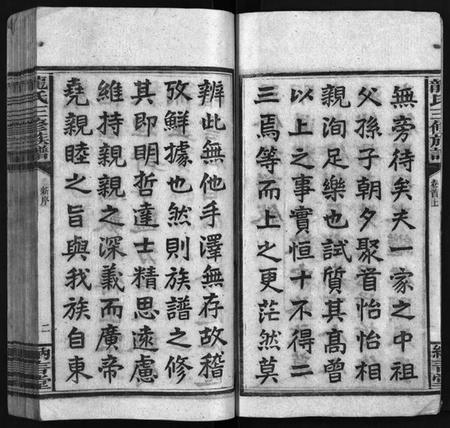 龍氏三修族譜
卷首上
無旁待矣夫一家之中祖
父孫子朝夕聚首怡怡相
親洵足樂也試質其高曾
以上之事實恒十不得二
三焉等而上之更茫然莫
辨此無他手澤無存故稽
攷鮮據也然則族譜之修
其即明哲達士精思遠慮
維持親親之深義而廣帝
堯親睦之旨與我族自東
龍氏三修族譜
新序
二
納言堂